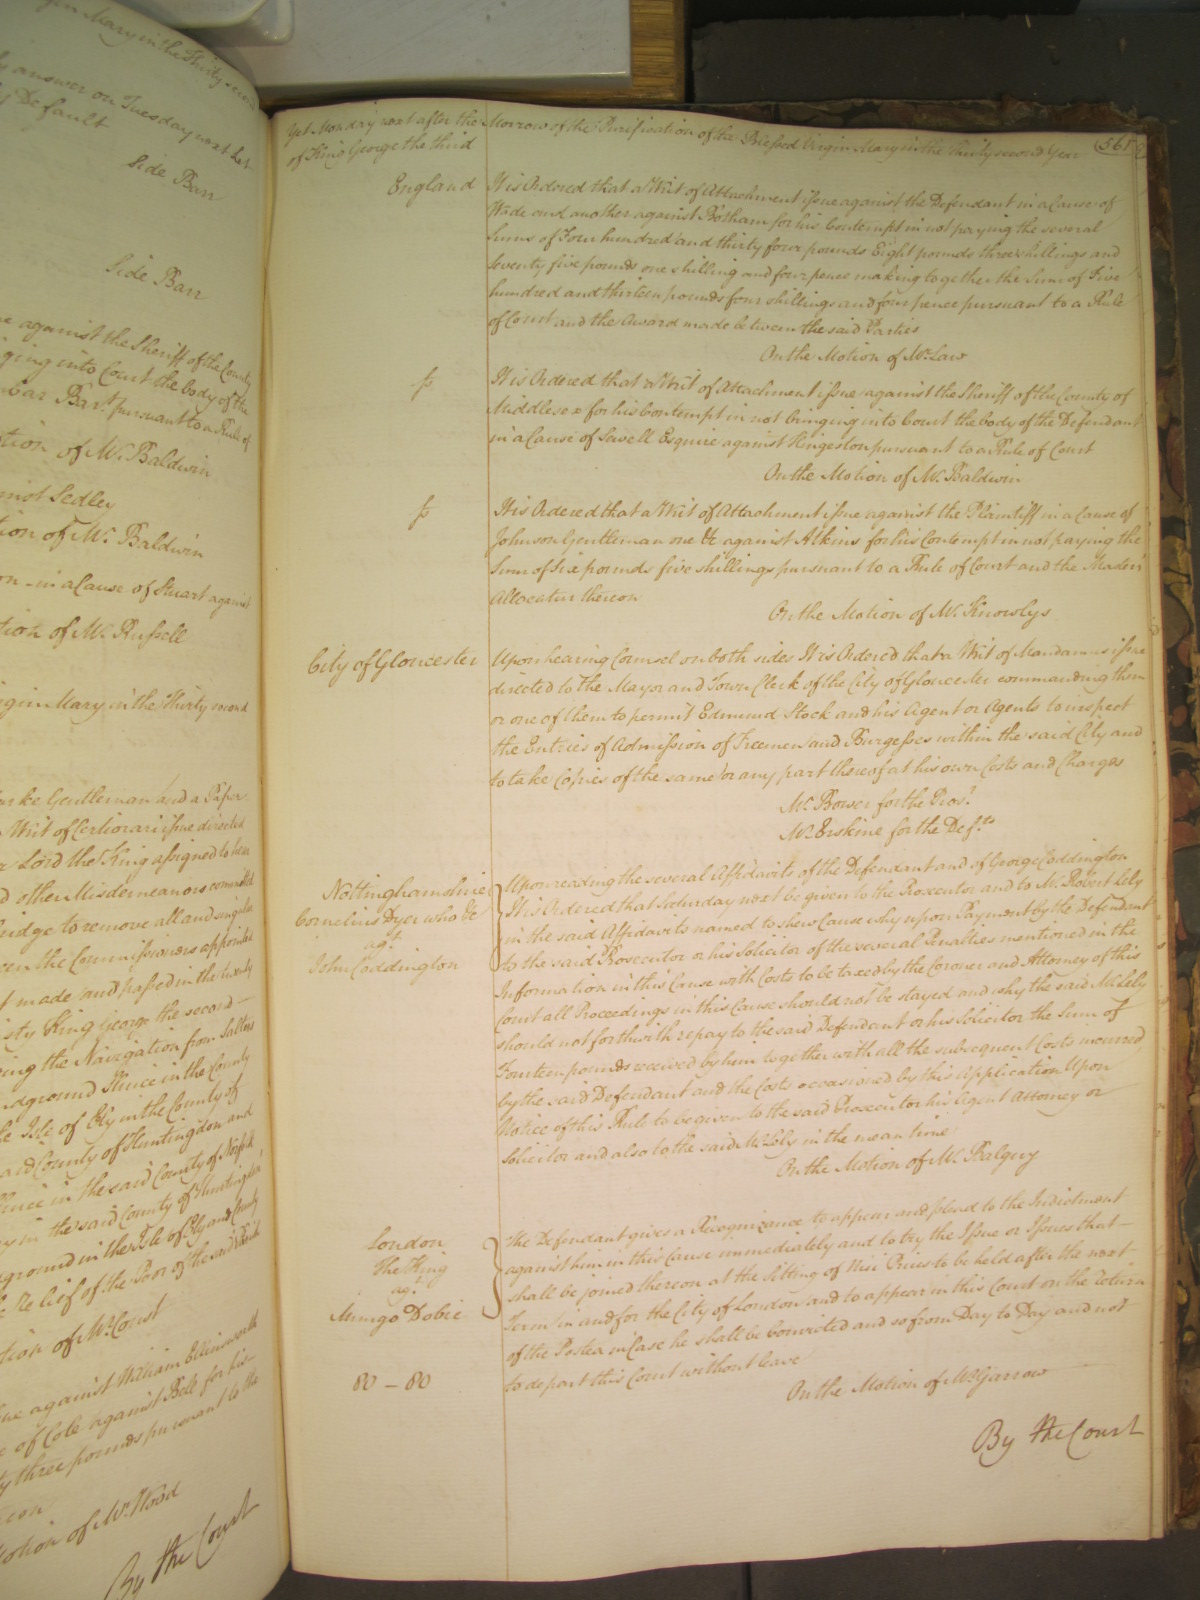 gin Mary in the Thirty second
answer on Tuesday next let
Default
Side Barr
Side Barr
against the Sheriff of the County
ging into Court the body of the
Bar Barr pursuant to a Rule of
tion of Mr. Baldwin
inst Sedley
tion of Mr. Baldwin
on in a Cause of Stuart against
tion of Mr. Russell
irgin Mary in the Thirty second
Gentleman and a Paper
Writ of Certiorari issue directed
Lord the King assigned to hear
d other Misdemeanors committed
ridge to remove all and singular
the Commissioners appointed
t made and passed in the twenty
sty King George the second
ing the Navigation from Salters
in the County
he Isle of Ely in the County of
aid County of Huntingdon and
in the said County of Norfolk
in the said County of Huntingdon
ground in the Isle of Ely and County
Relief of the Poor of the said
tion of Mr. Coust
ue against William Ellinsworth
e of Cole against Bell for his
ty three pounds pursuant to the
eon
Motion of Mr. Wood
By the Court
561
Yet Monday next after the Morrow of the Purification of the Blessed Virgin Mary in the thirty second Year
of King George the third
England
It is Ordered that a Writ of Attachment issue against the Defendant in a Cause of
Wade and another against Botham for his Contempt in not paying the several
Sums of Four hundred and thirty four pounds Eight pounds three shillings and
Seventy five pounds one shilling and four pence making together the Sum of Five
hundred and thirteen pounds four shillings and four pence pursuant to a Rule
of Court and the Award made between the said Parties
On the Motion of Mr. Law
It is Ordered that a Writ of Attachment issue against the Sheriff of the County of
Middlesex for his Contempt in not bringing into Court the body of the Defendant
in a Cause of Sawell Esquire against Kingeston pursuant to a Rule of Court
On the Motion of Mr. Baldwin
It is Ordered that a Writ of Attachment issue against the Plaintiff in a Cause of
Johnson Gentleman one &c against Atkins for his Contempt in not paying the
Sum of Six pounds five shillings pursuant to a Rule of Court and the Masters
Allocatur thereon
On the Motion of Mr. Knowlys
City of Gloucester
Upon hearing Counsel on both sides It is Ordered that a Writ of Mandamus issue
directed to the Mayor and Town Clerk of the City of Gloucester commanding them
or one of them to permit Edmund Stock and his Agent or Agents to inspect
the Entries of Admission of Freemen and Burgesses within the said City and
to take Copies of the same or any part thereof at his own Costs and Charges
Mr. Bower for the Pros.r
Mr. Erskine for the Def.ts
Nottinghamshire
Cornelius Dyer who &c
ag.t
John Coddington
Upon reading the several Affidavits of the Defendant and of George Coddington
It is Ordered that Saturday next be given to the Prosecutor and to Mr. Robert Lely
in the said Affidavits named to shew Cause why upon Payment by the Defendant
to the said Prosecutor or his Solicitor of the several Penalties mentioned in the
Information in this Cause with Costs to be taxed by the Coroner and Attorney of this
Court all Proceedings in this Cause should not be stayed and why the said Mr. Lely
should not forthwith repay to the said Defendant or his Solicitor the Sum of
Fourteen pounds received by him together with all the subsequent Costs incurred
by the said Defendant and the Costs occasioned by this Application Upon
Notice of this Rule to be given to the said Prosecutor his Agent Attorney or
Solicitor and also to the said Mr. Lely in the mean time
On the Motion of Mr. Balguy
London
The King
ag.t
Mungo Dobie
80 – 80
The Defendant gives a Recognizance to appear and plead to the Indictment
against him in this Cause immediately and to try the Issue or Issues that
shall be joined thereon at the Sitting of Nisi Prius to be held after the next
Term in and for the City of London and to appear in this Court on the Return
of the Postea in Case he shall be Convicted and so from Day to Day and not
to depart this Court without leave
On the Motion of Mr. Garrow
By the Court